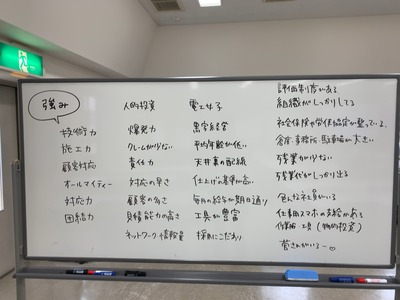 強み
技術力
施工力
顧客対応
オールマイティー
対応力
団結力
人的投資
爆発力
クレームが少ない
責任力
対応の早さ
顧客の多さ
見積能力の高さ
ネットワーク情報量
電工女子
黒字経営
平均年齢が低い
天井裏の配線
仕上げの基準が高い
毎月の給与が期日通り
工具が豊富
採用にこだわり
評価制度がある
組織がしっかりしてる
社会保険や労保協会が整っている
倉庫・事務所・駐車場が大きい
残業が少ない
残業代がしっかり出る
色んな社員がいる
仕事用スマホの支給がある
作業服・工具(物的投資)
菅さんがいるー♡